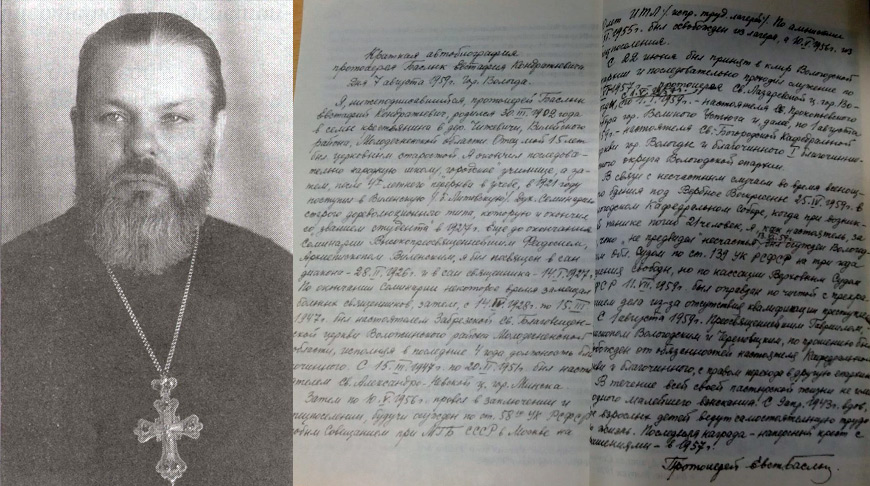 Краткая автобиография
протоиерея Баслык Евстафия Кондратьевича
Дня 7 августа 1959г. Гор. Вологда.
Я, нижеподписавшийся, протоиерей Баслык
Евстафий Кондратьевич, родился 30.III.1902 года
в семье крестьянина в дер. Витского
района, Молодеченской области. Отец мой 15 лет
был церковным старостой. Я окончил последова-
тельно народную школу, городское училище, а за-
тем, после летнего перерыва в учебе, в 1921 году
поступил в Виленскую Дух. Семинарию
строго дореволюционного типа, которую и окончил
со званием студента в 1927г. Еще до окончания
Семинарии Высокопреосвященнейшим Феодосием,
Архиепископом Виленским, я был посвящен в сан
диакона - 28.II.1926г. и в сан священника - 14.I.1927г.
По окончании Семинарии некоторое время замещал
больных священников, затем, с 14. 1928г. по 15.III
1947г. был настоятелем Забрезской Св. Благовещен-
ской церкви Воложинского района Молодеченской
области, исполняя в последние 4 года должность бла-
гочинного. С 15.III.1947г. по 20 1951г. был насто-
ятелем Св. Александро-Невской ц. гор. Минска.
Затем по 10.V.1956г. провел в заключении и
будучи осужден по ст. 58 УК РСФСР
Совещанием при МГБ СССР в Москве на
лет ИТЛ (испр. труд. лагерей). По амнистии
1955г. был освобожден из лагеря, а 10.V.1956г. из
С 22 июня был принят в клир Вологодской
епархии и последовательно проходил служение по
Св. Лазаревской ц. гор. Во-
логды, по 1.I.1959г. - настоятеля Св. Прокопиевского
собора гор. Великого Устюга и, далее, по 1 августа
- настоятеля Св. Богородской Кафедральной
церкви гор. Вологды и благочинного I благочинни-
ческого округа Вологодской епархии.
В связи с несчастным случаем во время всенощ-
ного бдения под Вербное Воскресенье 25.IV.1959г. в
Вологодском Кафедральном Соборе, когда при возник-
шей панике погиб 21 человек, я, как настоятель, за
то, что "не предвидел несчастья", был осужден Вологод-
ским обл. Судом по ст. 139 УК РСФСР на три года
лишения свободы, но по кассации Верховным Судом
РСФСР 11.VII.1959г. был оправдан по чистой с прекра-
щением дела из-за отсутствия квалификации преступле-
С 1 августа 1959г. Преосвященнейшим Гавриилом,
епископом Вологодским и Череповецким, по прошению был
освобожден от обязанностей настоятеля Кафедрального
и благочинного, с правом перехода в другую епархию.
В течение всей своей пастырской жизни не имел
одного малейшего взыскания! С 9 апр. 1943г. вдов,
взрослых детей ведут самостоятельную трудо-
жизнь. Последняя награда - наперсный крест с
украшениями - в 1957г.
Протоиерей Евст. Баслык